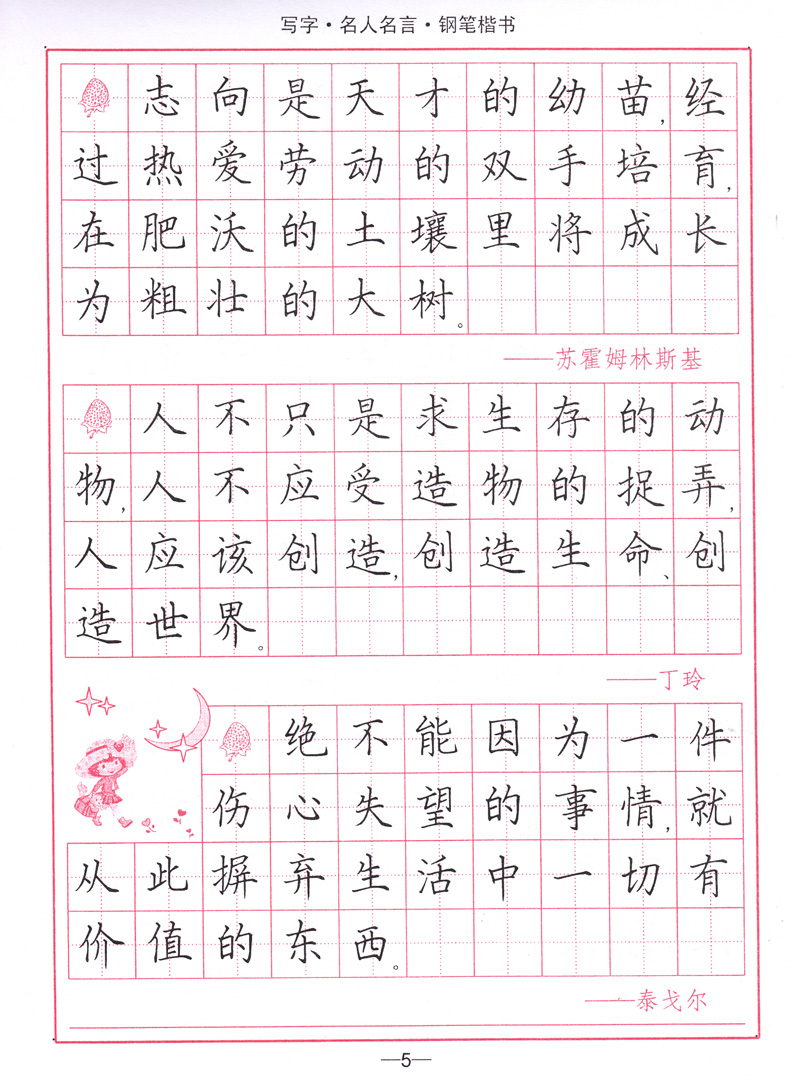 写字·名人名言·钢笔楷书
志向是天才的幼苗,经
过热爱劳动的双手培育,
在肥沃的土壤里将成长
为粗壮的大树。
——苏霍姆林斯基
人不只是求生存的动
物,人不应受造物的捉弄,
人应该创造,创造生命、创
造世界。
——丁玲
绝不能因为一件
伤心失望的事情,就
从此摒弃生活中一切有
价值的东西。
——泰戈尔
—5—